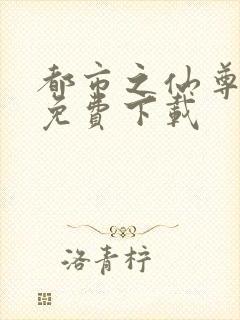 都市之仙尊
免費下載
洛青梓